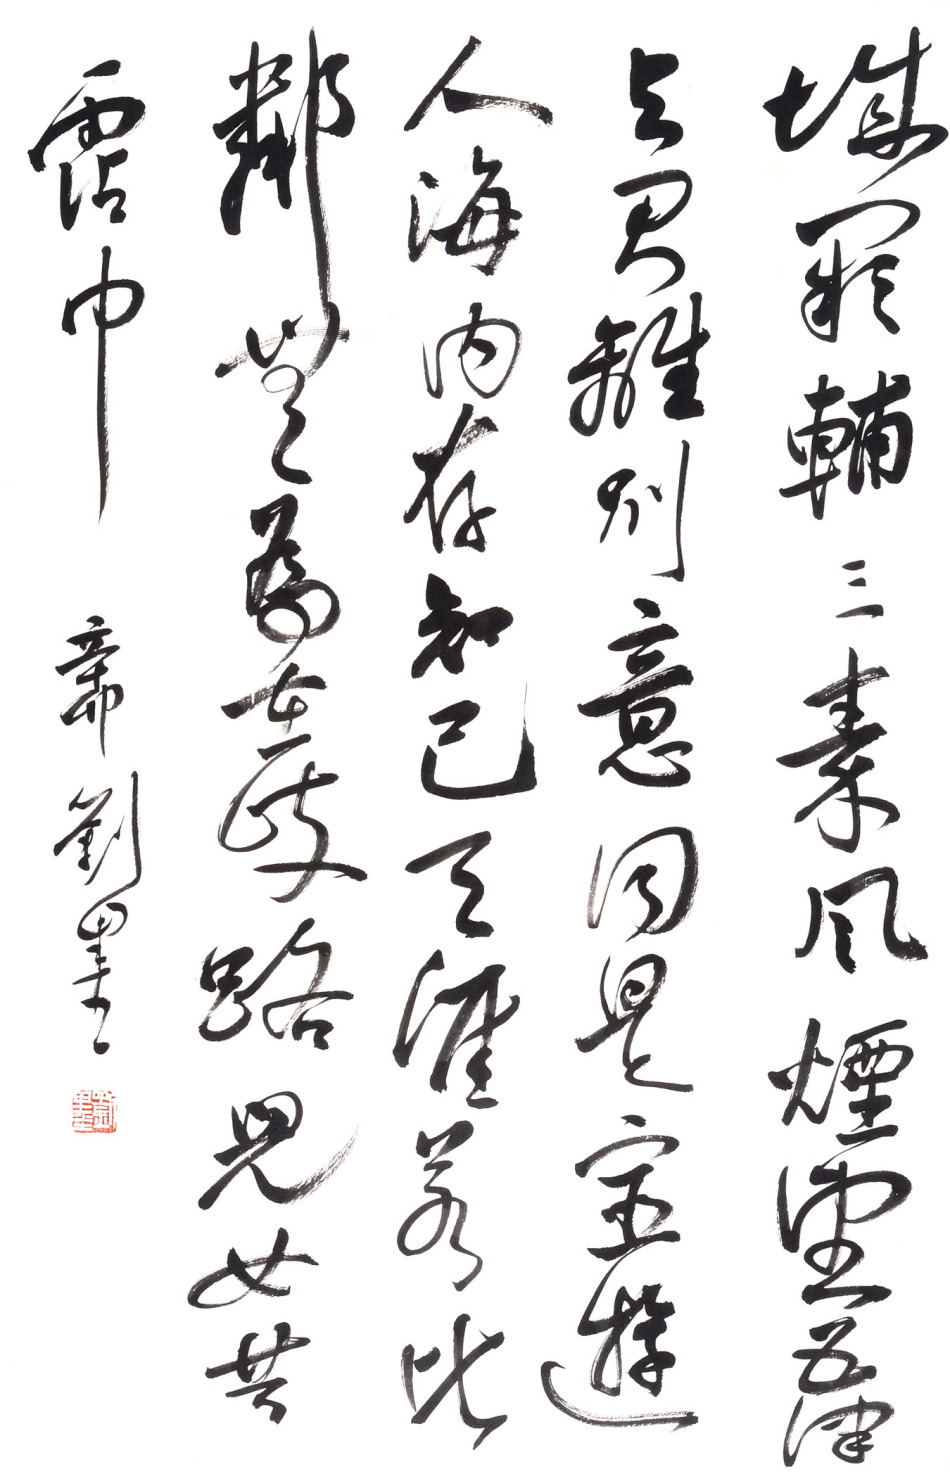 城闕輔三秦風煙望五津
与君離別意同是宦遊
人海内存知己天涯若比
鄰無為在歧路兒女共
霑巾 辛卯劉墨